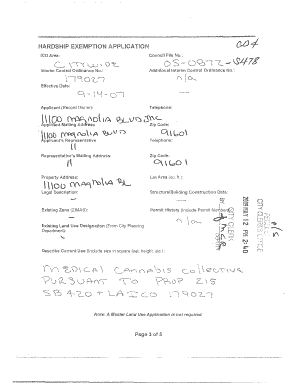 CD4
HARDSHIP EXEMPTION APPLICATION
ICO Area: Council File No.:
CITYWIDE 05-0872-S478
Interim Control Ordinance No.: Additional Interim Control Ordinance No.:
179027 n/a
Effective Date:
9-14-07 —
Applicant (Record Owner) Telephone:
11100 MAGNOLIA BLVD, INC
Applicant Mailing Address: Zip Code:
11100 MAGNOLIA BLVD 91601
Applicant's Representative Telephone:
11
Representative's Mailing Address: Zip Code:
11 91601
Property Address: Lot Area (sq. ft.):
11100 magnolia BL
Legal Description: Structural/Building Construction Date:
Existing Zone (ZIMAS): Permit History (Include Permit Number):
n/a
Existing Land Use Designation (From City Planning
Department):
CITY CLERK
2008 MAY 12 PM 2:40
CITY CLERK'S OFFICE
Describe Current Use (Include size in square feet, height etc.):
MEDICAL CANNABIS COLLECTIVE
PURSUANT TO PROP 215
SB 420 + LA ICO 179027
Note: A Master Land Use Application is not required.
Page 3 of 5